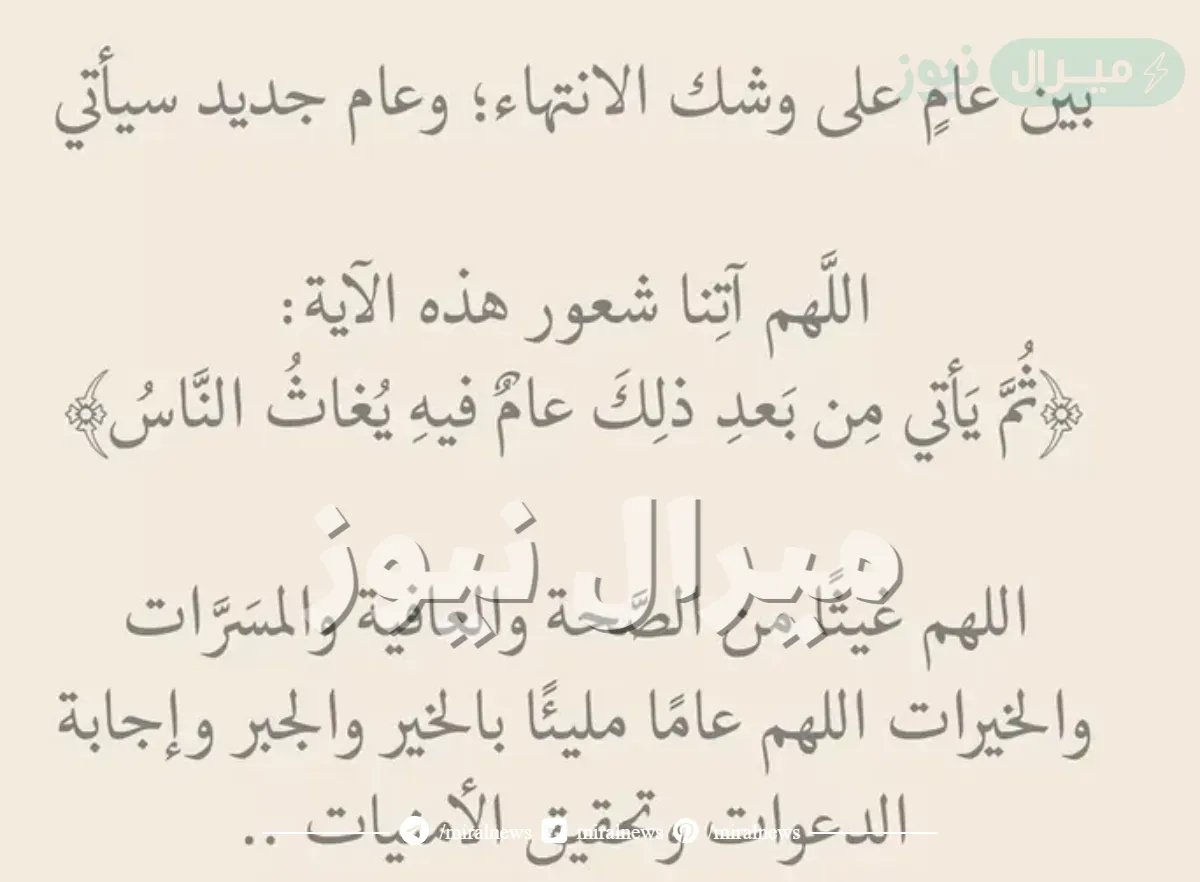 ميرال نيوز
بين عامٍ على وشك الانتهاء؛ وعام جديد سيأتي
اللَّهم آتِنا شعور هذه الآية:
﴿ثُمَّ يَأتي مِن بَعدِ ذلِكَ عامٌ فيهِ يُغاثُ النَّاسُ﴾
ميرال نيوز
اللهم غيثًا من الصَّحة والعافية والمسَرَّات
والخيرات اللهم عامًا مليئًا بالخير والجبر وإجابة
الدعوات وتحقيق الأمنيات ..
/miralnews miralnews /miralnews